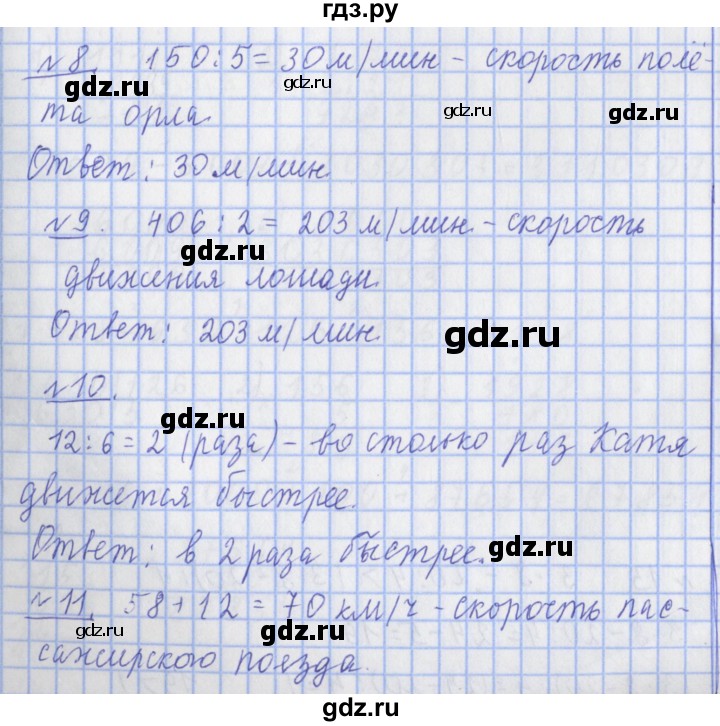 гдз.ру
№8. 150:5=30м/мин - скорость полё-
та орла.
gdz.ru
gdz.ru
gdz.ru
Ответ: 30м/мин.
№9. 406:2= 203 м/мин. - скорость
gdz.ru
движения лошади.
Ответ: 203 м/мин.
gdz.ru
№10.
gdz.ru
12:6=2 (раза) - во столько раз Катя
движется быстрее.
Ответ: в 2 раза быстрее.
gdz.ru
№11. 58+12=70км/ч - скорость пас-
gdz.ru
gdz.ru
сажирского поезда.
gdz.ru
gdz.ru
gdz.ru